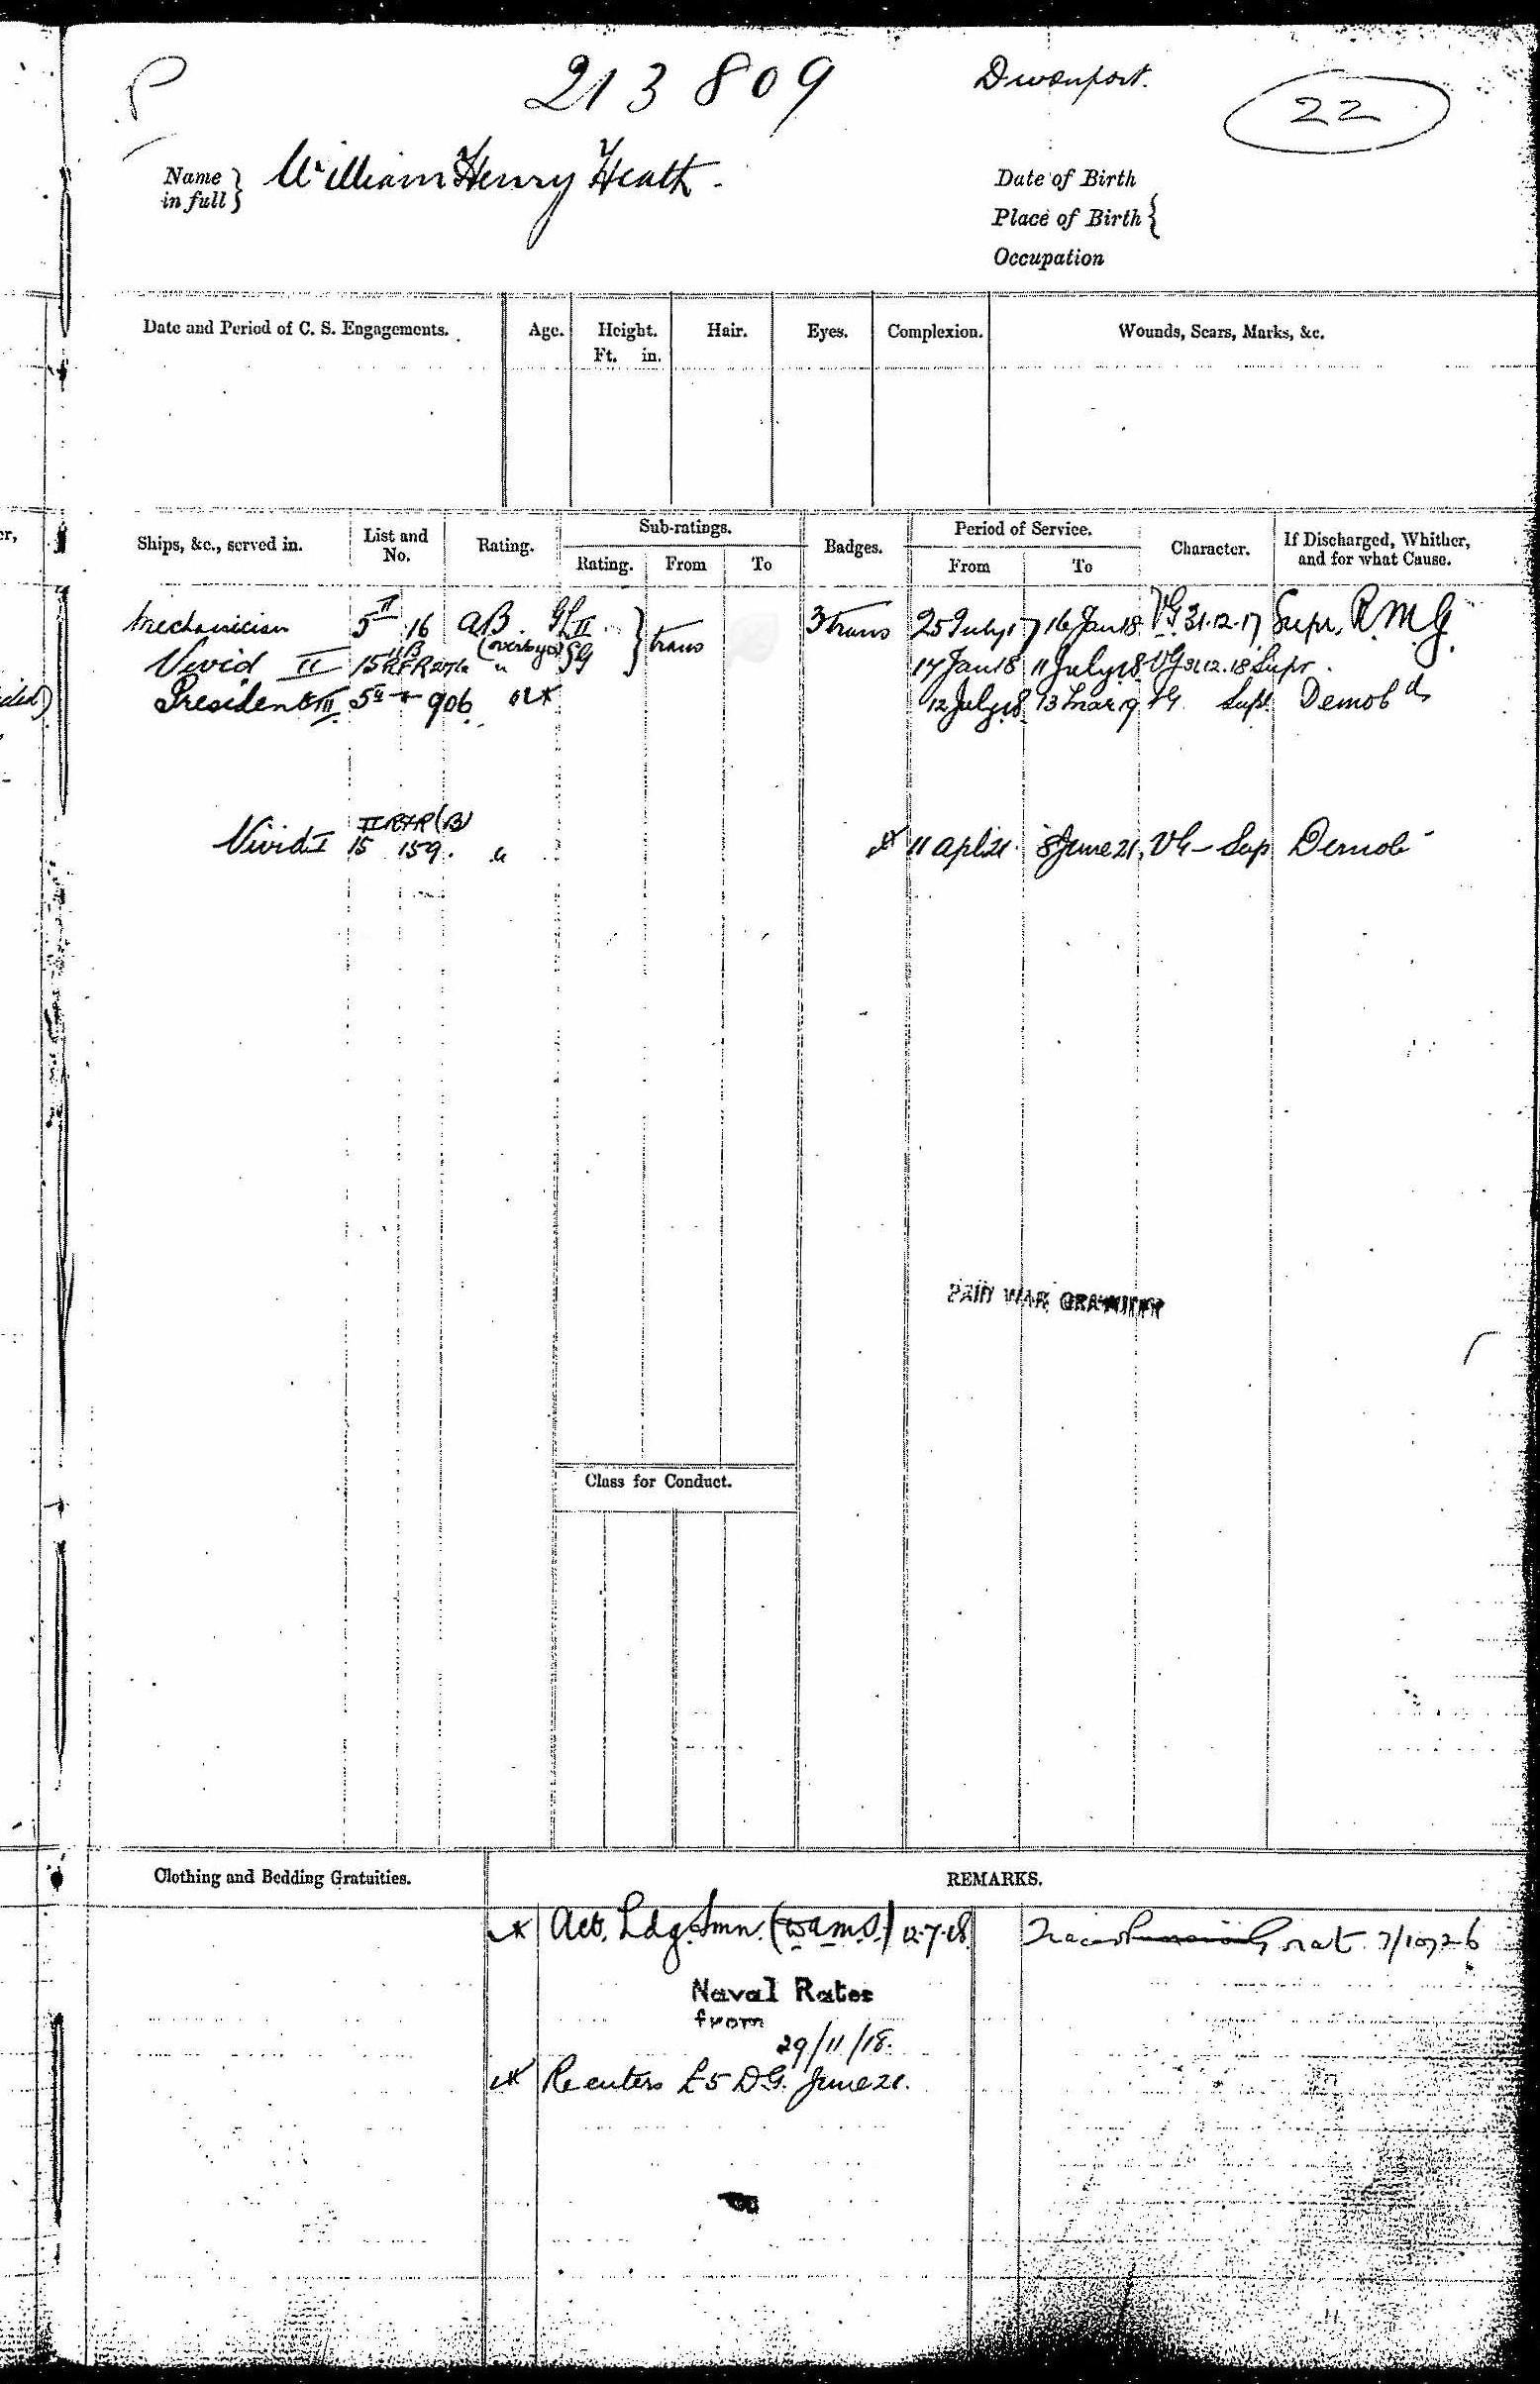 213809 Devonport. 22
Name in full } William Henry Heath.
Date of Birth
Place of Birth {
Occupation
Date and Period of C. S. Engagements. Age. Height. Ft. in. Hair. Eyes. Complexion. Wounds, Scars, Marks, &c.
Ships, &c., served in. List and No. Rating. Sub-ratings. Rating. From To Badges. Period of Service. From To Character. If Discharged, Whither, and for what Cause.
Mechanician 5 II 16 AB GL II } trans 3 trans 25 July 17 16 Jan 18 VG 31.12.17 Supr. R.M.G.
Vivid II 15 RFR " SG 17 Jan 18 11 July 18 VG 31.12.18 Supr.
President III 5 906 12 July 18 13 Mar 19 VG Supr Demob d
Vivid I 15 159. " 11 Apl 21. 8 June 21. VG - Sup Demob
PAID WAR GRATUITY
Class for Conduct.
Clothing and Bedding Gratuities. REMARKS.
Act. Ldg. Smn. (W.A.M.S.) 12.7.18 Grat. 7/10726
Naval Rates
from
29/11/18.
Reenters £5 D.G. June 21.